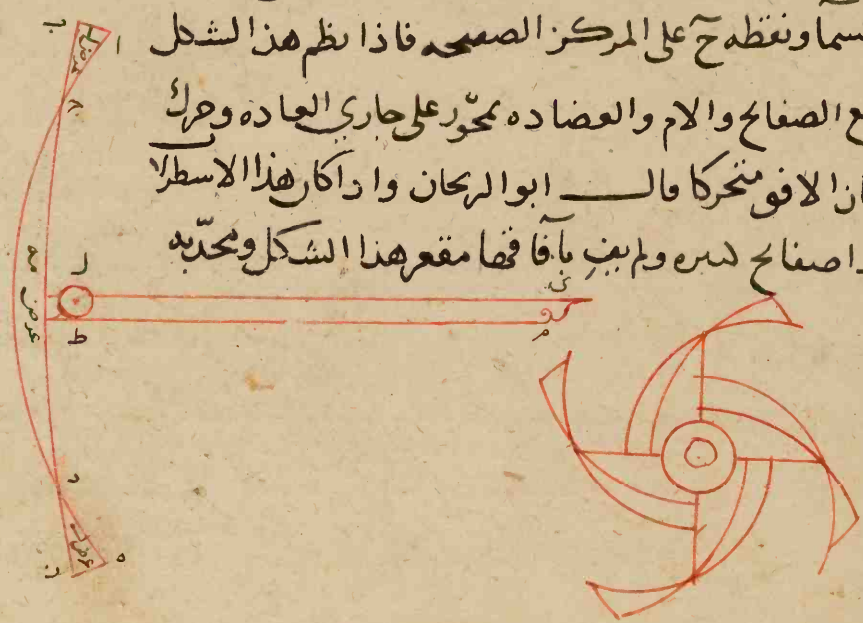 سما ونقطه ح على المركز الصفيحه فاذا نظم هذا الشكل
ع الصفايح والام والعضاده بمحور على جاري العاده وحرك
ان الافق متحركا قال ابو الريحان واذا كان هذا الاسطرلا
ا صفايح كثيره ولم يفِ بآفاقها مقعر هذا الشكل ومحدبه
ا
عرض
عرض مه
ل
ط
ى
م
د
عرض
ه
ز